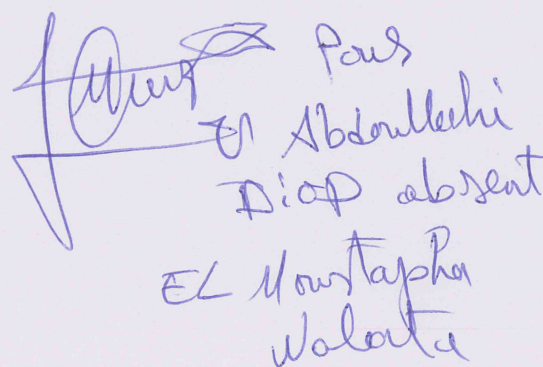 Pour
El Abdoullahi
Diop absent
EL Moustapha
Walata